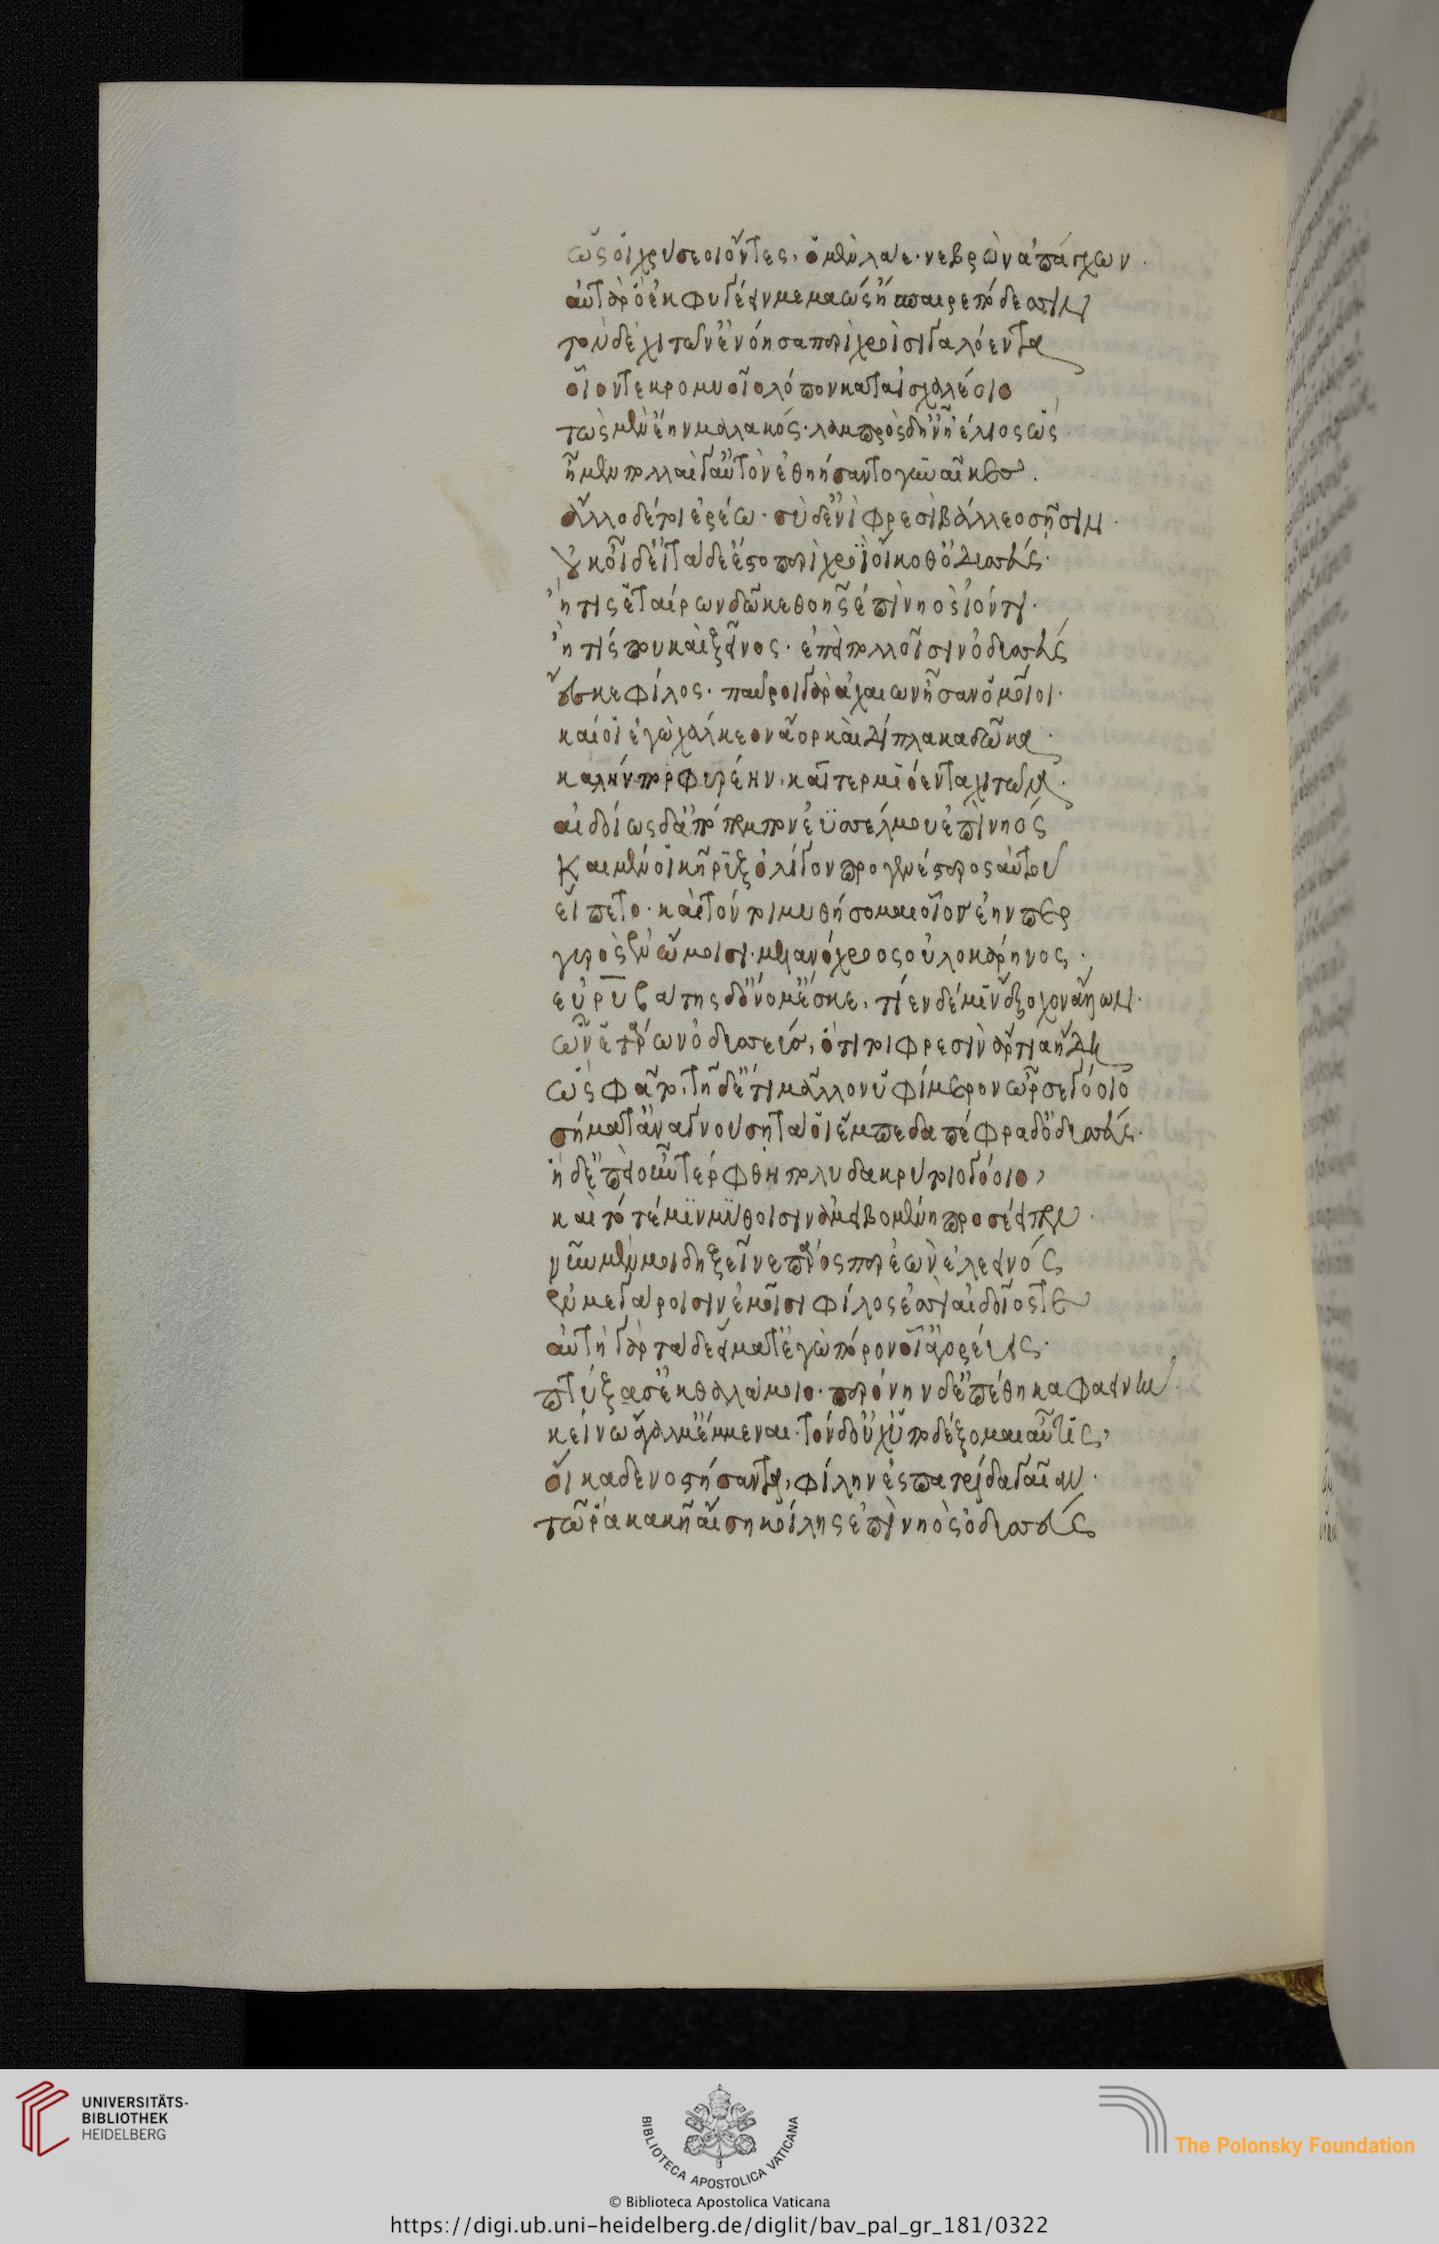 ὡς οἱ χρύσεοι ὄντες, ὁ μὲν λάε νεβρὸν ἀπάγχων.
αὐτὰρ ὁ ἐκφυγέειν μεμαὼς ἤσπαιρε πόδεσσι
τὸν δὲ χιτῶν' ἐνόησα περὶ χροῒ σιγαλόεντα
οἷόν τε κρομύοιο λοπὸν κατὰ ἰσχαλέοιο
τὼς μὲν ἔην μαλακός· λαμπρὸς δ' ἦν ἠέλιος ὥς
ἦ μὲν πολλαί γ' αὐτὸν ἐθηήσαντο γυναῖκες.
ἄλλο δέ τοι ἐρέω· σὺ δ' ἐνὶ φρεσὶ βάλλεο σῇσιν.
οὐκ οἶδ' εἰ τάδε ἕστο περὶ χροῒ οἴκοθ' ὀδυσσεύς·
ἤ τις ἑταίρων δῶκε θοῆς ἐπὶ νηὸς ἰόντι.
ἤ τίς που καὶ ξεῖνος· ἐπεὶ πολλοῖσιν ὀδυσσεύς
ἔσκε φίλος· παῦροι γὰρ ἀχαιῶν ἦσαν ὁμοῖοι.
καί οἱ ἐγὼ χάλκεον ἄορ καὶ δίπλακα δῶκα.
καλὴν πορφυρέην, καὶ τερμιόεντα χιτῶνα.
αἰδοίως δ' ἀπόπεμπον ἐϋσσέλμου ἐπὶ νηός
καὶ μέν οἱ κῆρυξ ὀλίγον προγενέστερος αὐτοῦ
εἵπετο· καὶ τόν τοι μυθήσομαι οἷος ἔην περ
γυρὸς ἐν ὤμοισι· μελανόχροος οὐλοκάρηνος.
εὐρυβάτης δ' ὄνομ' ἔσκε, τίεν δέ μιν ἔξοχον ἄλλων.
ὧν ἑτάρων ὀδυσσεύς, ὅτι οἱ φρεσὶν ἄρτια ᾔδη
ὣς φάτο, τῇ δ' ἔτι μᾶλλον ὑφ' ἵμερον ὦρσε γόοιο
σήματ' ἀναγνούσῃ τά οἱ ἔμπεδα πέφραδ' ὀδυσσεύς.
ἡ δ' ἐπεὶ οὖν τέρφθη πολυδακρύτοιο γόοιο,
καὶ τότε μιν μύθοισιν ἀμειβομένη προσέειπεν.
νῦν μὲν δή μοι ξεῖνε πάρος περ ἐὼν ἐλεεινός
ἐν μεγάροισιν ἐμοῖσι φίλος ἔσσῃ αἰδοῖός τε
αὐτὴ γὰρ τάδε εἵματ' ἐγὼ πόρον οἷ' ἀγορεύεις.
πτύξασ' ἐκ θαλάμοιο· περόνην δ' ἐπέθηκα φαεινήν.
κείνῳ ἄγαλμ' ἔμμεναι· τὸν δ' οὐχ ὑποδέξομαι αὖτις,
οἴκαδε νοστήσαντα, φίλην ἐς πατρίδα γαῖαν.
τῶ ῥα κακῇ αἴσῃ κοίλης ἐπὶ νηὸς ὀδυσσεύς
UNIVERSITÄTS-
BIBLIOTHEK
HEIDELBERG
BIBLIOTECA APOSTOLICA VATICANA
The Polonsky Foundation
© Biblioteca Apostolica Vaticana
https://digi.ub.uni-heidelberg.de/diglit/bav_pal_gr_181/0322